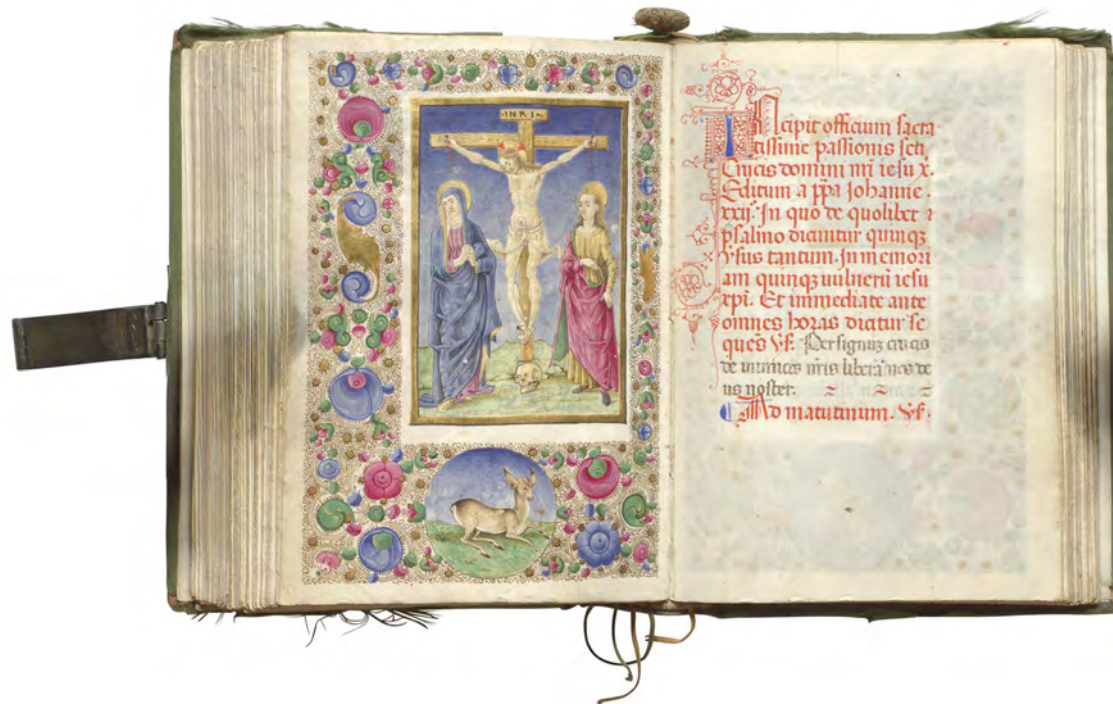 ·INRI·
Incipit officium sacra
tissime passionis scti
Crucis domini nri iesu x.
Editum a ppa Johanne.
xxij. In quo de quolibet
psalmo dicuntur quinqz
vsus tantum. In memori
am quinqz uulnerū iesu
xpi. Et immediate ante
omnes horas dicatur se
quēs V. Per signuz crucis
de inimicis nris libera nos de
us noster.
Ad matutinum. V.